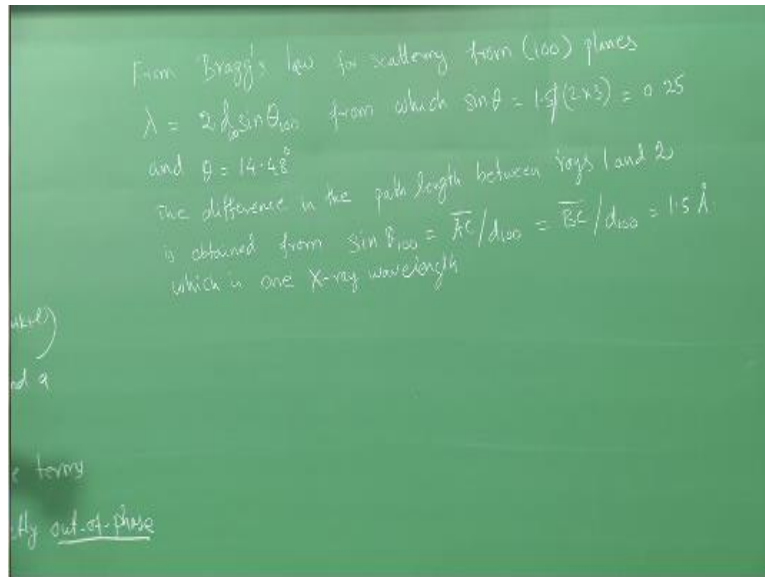 From Bragg's law for scattering from (100) planes
λ = 2 d₁₀₀ sin θ₁₀₀ from which sin θ = 1.5/(2×3) = 0.25
and θ = 14.48°
The difference in the path length between rays 1 and 2
is obtained from sin θ₁₀₀ = A̅C̅/d₁₀₀ = B̅C̅/d₁₀₀ = 1.5 Å.
which is one X-ray wavelength
nd a
terms
out-of-phase